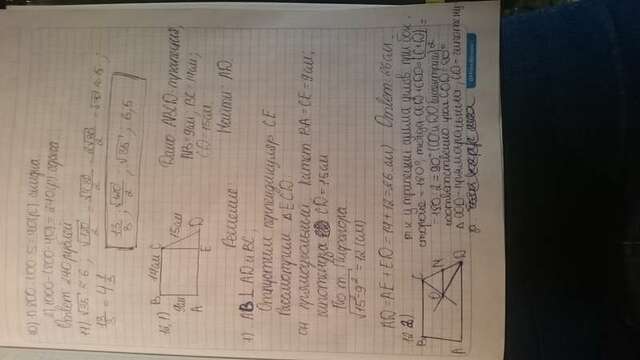 10) 1) 800:100·5=40(р) скидка
2) 1000-(800-40)=240(р) сдача.
Ответ 240 рублей
√35 ≈ 6 ;
13/3 = 4 1/3
13/3 ; √120/2 ; √35 ; 6,5
1) B 14см C
9см 15см
A E D
Дано: ABCD-трапеция,
AB=9см; BC=14см;
CD=15см
Найти: AD.
Решение:
1) AB⊥AD и BC;
Опустим перпендикуляр CE
Рассмотрим ΔECD:
он прямоугольный, катет BA=CE=9см,
гипотенуза CD=15см
По т. Пифагора
√15²-9² = 12(см)
AD=AE+ED=14+12=26(см) Ответ: 26см.
2) т.к у трапеции сумма углов при бок.
стороне = 180°, тогда
B C
O N
A D
=180:2=90°
соответственно угол COD=90°
ΔCOD-прямоугольный, CD-гипотену
за